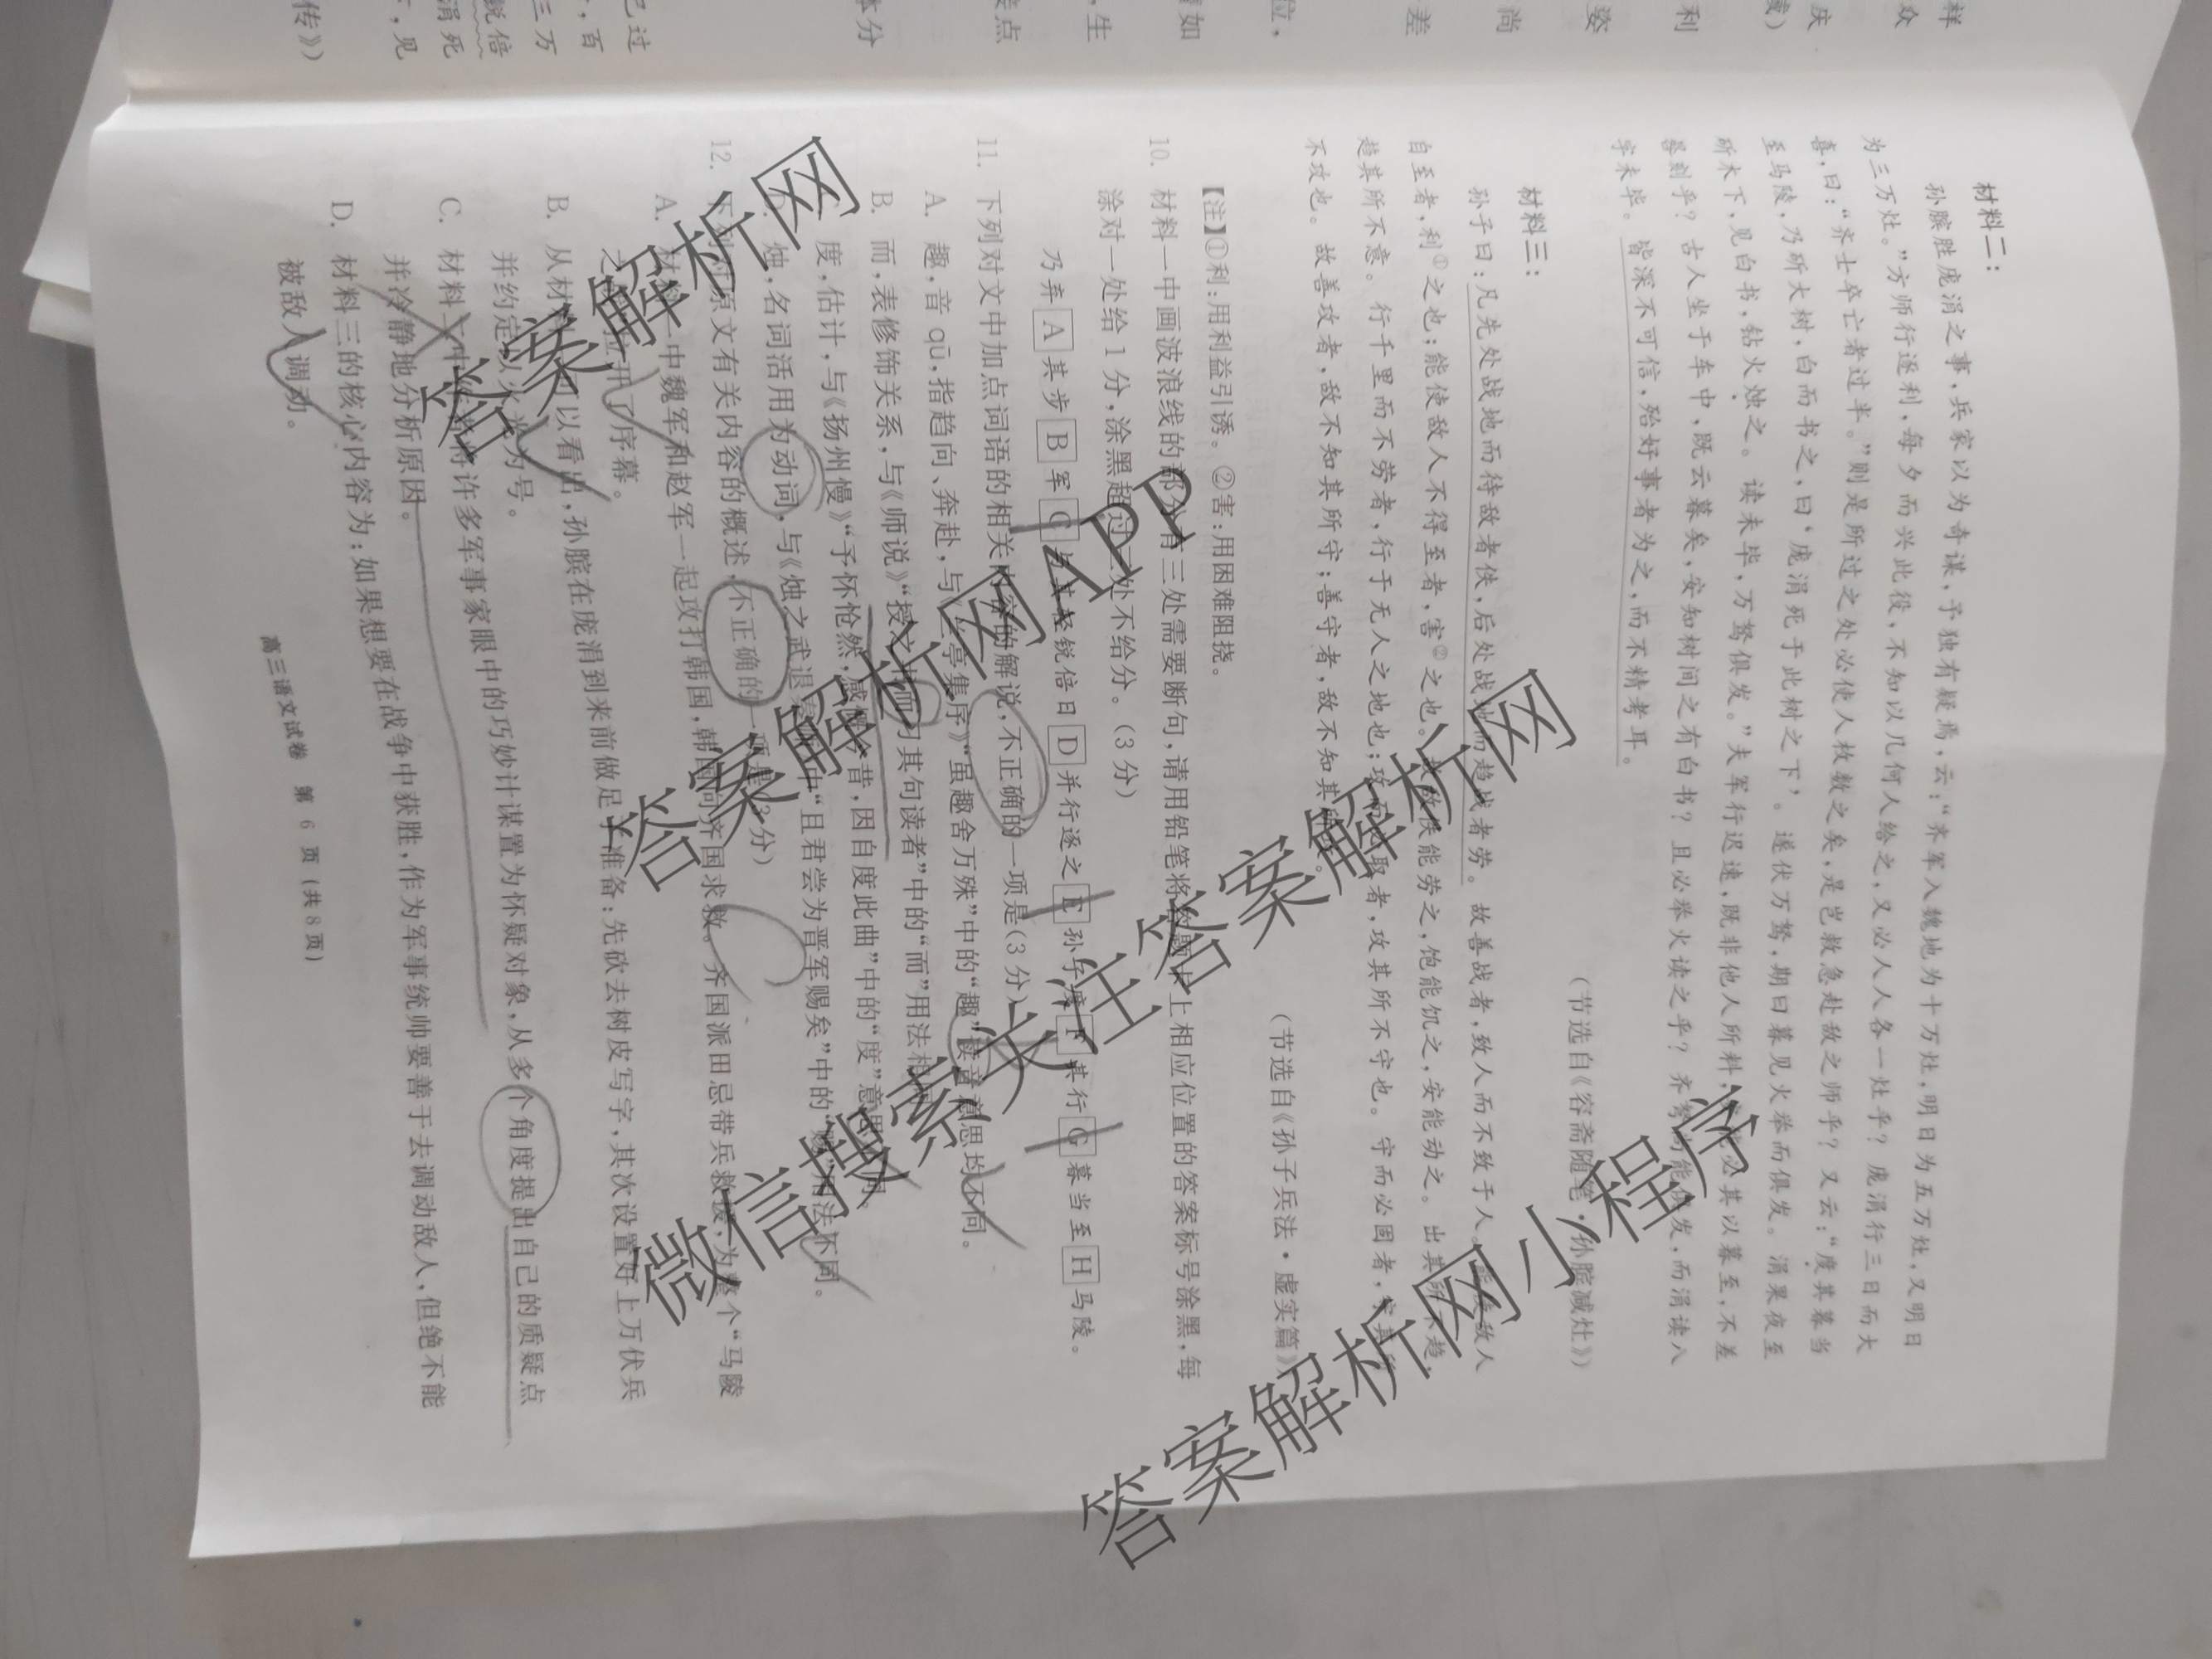 材料二：
孙膑胜庞涓之事，兵家以为奇谋，予独有疑焉，云：“齐军入魏地为十万灶，明日为五万灶，又明日
为三万灶。”方师行逐利，每夕而兴此役，不知以几何人给之，又必人人各一灶乎？庞涓行三日而大
喜，曰：“齐士卒亡者过半。”则是所过之处必使人枚数之矣，是岂救急赴敌之师乎？又云：“度其暮当
至马陵，乃斫大树，白而书之，曰‘庞涓死于此树之下’。遂伏万弩，期曰暮见火举而俱发。涓果夜至
斫木下，见白书，钻火烛之。读未毕，万弩俱发。”夫军行迟速，既非他人所料，必其以暮至，不差
晷刻乎？古人坐于车中，既云暮矣，安知树间之有白书？且必举火读之乎？齐弩能俱发，而涓读八
字未毕。皆深不可信，殆好事者为之，而不精考耳。
（节选自《容斋随笔·孙膑减灶》）
材料三：
孙子曰：凡先处战地而待敌者佚，后处战地而趋战者劳。故善战者，致人而不致于人。能使敌人
自至者，利①之也；能使敌人不得至者，害②之也。故敌佚能劳之，饱能饥之，安能动之。出其所不趋，
趋其所不意。行千里而不劳者，行于无人之地也；攻而必取者，攻其所不守也。守而必固者，守其所
不攻也。故善攻者，敌不知其所守；善守者，敌不知其所攻。
（节选自《孙子兵法·虚实篇》）
【注】①利：用利益引诱。②害：用困难阻挠。
10. 材料一中画波浪线的部分有三处需要断句，请用铅笔将答题卡上相应位置的答案标号涂黑，每
涂对一处给1分，涂黑超过三处不给分。（3分）
乃弃A其步B军C与其轻锐倍日D并行逐之E孙子度F其行G暮当至H马陵。
11. 下列对文中加点词语的相关内容的解说，不正确的一项是（3分）
A. 趣，音qū，指趋向、奔赴，与《兰亭集序》“虽趣舍万殊”中的“趣”读音、意思均不同。
B. 而，表修饰关系，与《师说》“授之书而习其句读者”中的“而”用法相
度，估计，与《扬州慢》“予怀怆然，感慨今昔，因自度此曲”中的“度”意思不同。
烛，名词活用为动词，与《烛之武退秦师》中“且君尝为晋军赐矣”中的“赐”用法不同。
12. 下列对原文有关内容的概述，不正确的一项是（3分）
A. 材料一中魏军和赵军一起攻打韩国，韩国向齐国求救。齐国派田忌带兵救援，为整个“马陵
之战”拉开了序幕。
B. 从材料可以看出，孙膑在庞涓到来前做足了准备：先砍去树皮写字，其次设置好上万伏兵
并约定以火光为号。
C. 材料二中将许多军事家眼中的巧妙计谋置为怀疑对象，从多个角度提出自己的质疑点
并冷静地分析原因。
D. 材料三的核心内容为：如果想要在战争中获胜，作为军事统帅要善于去调动敌人，但绝不能
被敌人调动。
高三语文试卷 第6页（共8页）
答案解析网
微信搜索关注答案解析网
答案解析网APP
答案解析网小程序